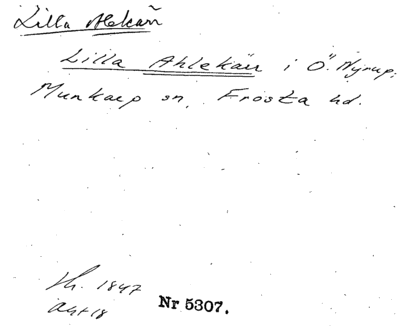 Lilla Alekärr
Lilla Ahlekärr i Ö. Nyrup.
Munkarp sn, Frosta hd.
1847
Akt 18
Nr 5307.